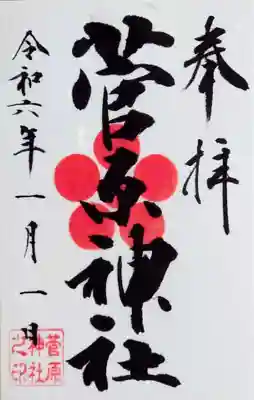 奉拝
菅原神社
令和六年一月一日
菅原
神社
之印